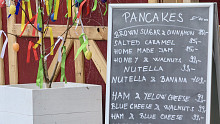 PANCAKES
BROWN SUGAR & CINNAMON
SALTED CARAMEL
HOME MADE JAM
HONEY & WALNUTS
NUTELLA
NUTELLA & BANANA
HAM & YELLOW CHEESE
BLUE CHEESE & WALNUTS
HAM & BLUE CHEESE